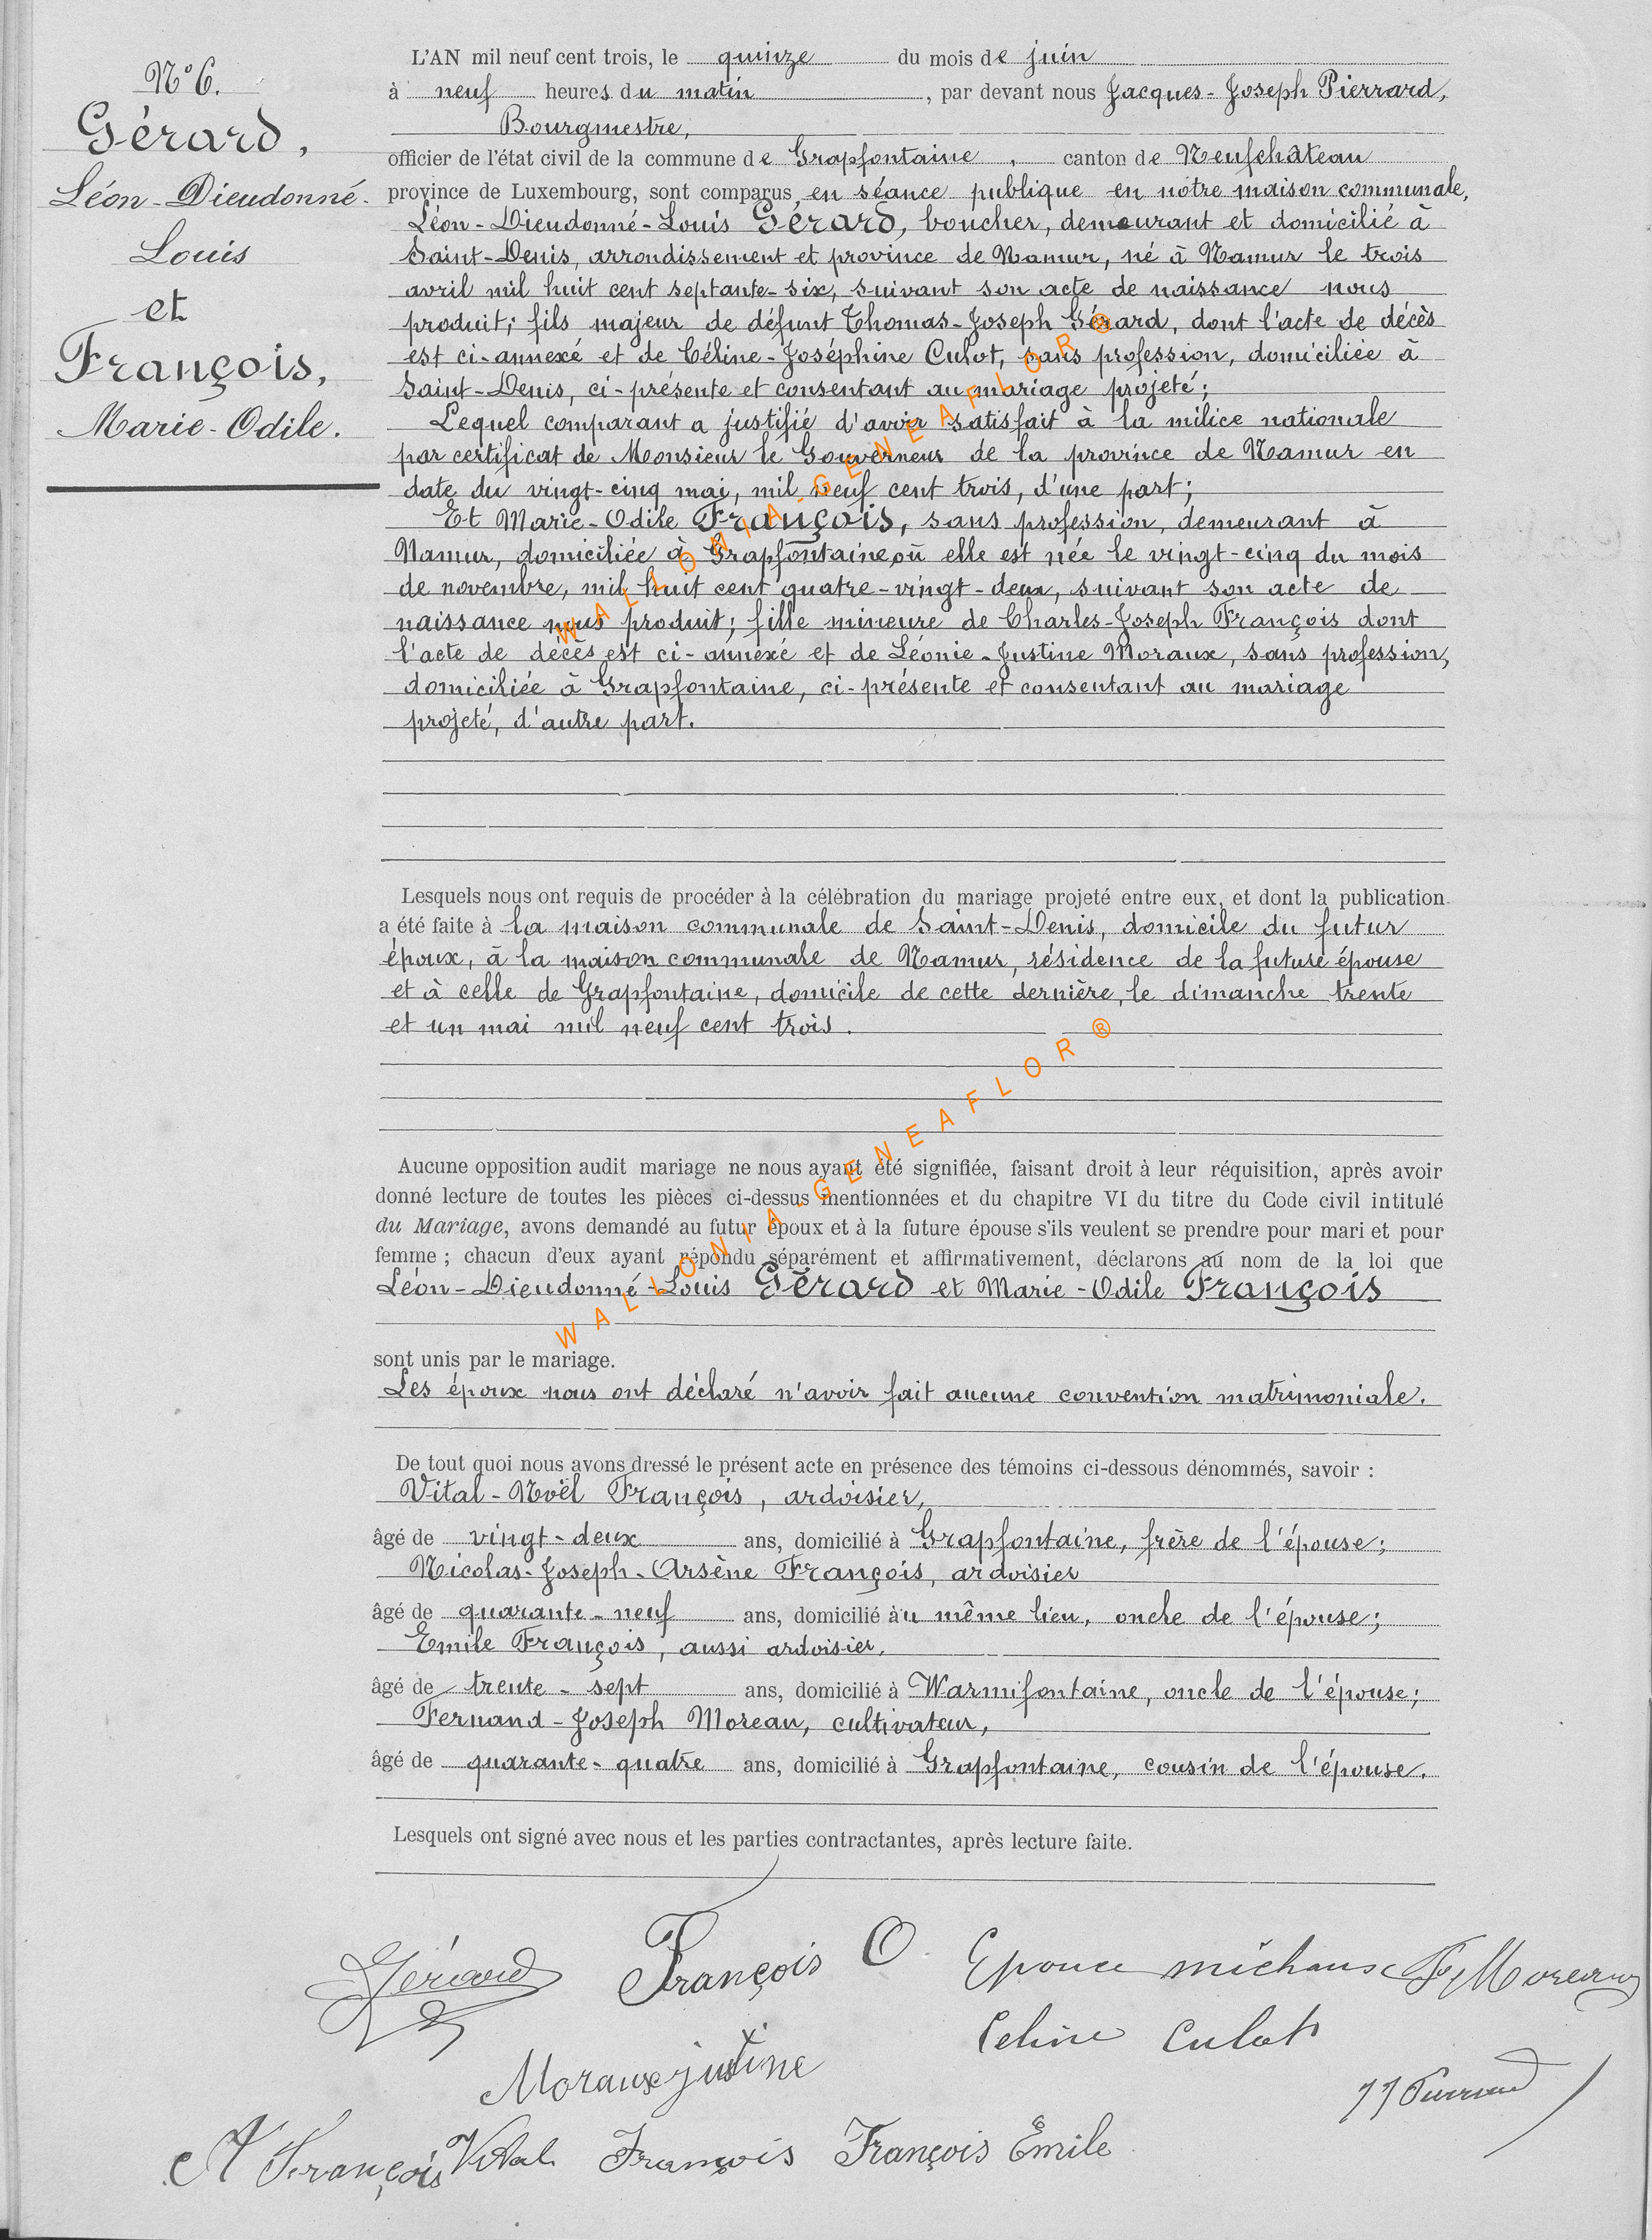 N° 6.
Gérard,
Léon-Dieudonné-
Louis
et
François,
Marie-Odile.
L'AN mil neuf cent trois, le quinze du mois de juin
à neuf heures du matin, par devant nous Jacques-Joseph Pierrard,
Bourgmestre,
officier de l'état civil de la commune de Grapfontaine, canton de Neufchâteau
province de Luxembourg, sont comparus en séance publique en notre maison communale,
Léon-Dieudonné-Louis Gérard, boucher, demeurant et domicilié à
Saint-Denis, arrondissement et province de Namur, né à Namur le trois
avril mil huit cent septante-six, suivant son acte de naissance nous
produit; fils majeur de défunt Thomas-Joseph Gérard, dont l'acte de décès
est ci-annexé et de Céline-Joséphine Culot, sans profession, domiciliée à
Saint-Denis, ci-présente et consentant au mariage projeté;
Lequel comparant a justifié d'avoir satisfait à la milice nationale
par certificat de Monsieur le Gouverneur de la province de Namur en
date du vingt-cinq mai, mil neuf cent trois, d'une part;
Et Marie-Odile François, sans profession, demeurant à
Namur, domiciliée à Grapfontaine, où elle est née le vingt-cinq du mois
de novembre, mil huit cent quatre-vingt-deux, suivant son acte de
naissance nous produit; fille mineure de Charles-Joseph François dont
l'acte de décès est ci-annexé et de Léonie-Justine Moraux, sans profession,
domiciliée à Grapfontaine, ci-présente et consentant au mariage
projeté, d'autre part.
WALLONIA-GENEAFLOR®
Lesquels nous ont requis de procéder à la célébration du mariage projeté entre eux, et dont la publication
a été faite à la maison communale de Saint-Denis, domicile du futur
époux, à la maison communale de Namur, résidence de la future épouse
et à celle de Grapfontaine, domicile de cette dernière, le dimanche trente
et un mai mil neuf cent trois.
WALLONIA-GENEAFLOR®
Aucune opposition audit mariage ne nous ayant été signifiée, faisant droit à leur réquisition, après avoir
donné lecture de toutes les pièces ci-dessus mentionnées et du chapitre VI du titre du Code civil intitulé
du Mariage, avons demandé au futur époux et à la future épouse s'ils veulent se prendre pour mari et pour
femme ; chacun d'eux ayant répondu séparément et affirmativement, déclarons au nom de la loi que
Léon-Dieudonné-Louis Gérard et Marie-Odile François
sont unis par le mariage.
Les époux nous ont déclaré n'avoir fait aucune convention matrimoniale.
De tout quoi nous avons dressé le présent acte en présence des témoins ci-dessous dénommés, savoir :
Vital-Noël François, ardoisier,
âgé de vingt-deux ans, domicilié à Grapfontaine, frère de l'épouse;
Nicolas-Joseph-Arsène François, ardoisier
âgé de quarante-neuf ans, domicilié au même lieu, oncle de l'épouse;
Emile François, aussi ardoisier,
âgé de trente-sept ans, domicilié à Warmifontaine, oncle de l'épouse;
Fernand-Joseph Moreau, cultivateur,
âgé de quarante-quatre ans, domicilié à Grapfontaine, cousin de l'épouse.
Lesquels ont signé avec nous et les parties contractantes, après lecture faite.
Gérard François O Epouce michaux F Moreau
Celine Culot
Moraux justine
JJ Pierrard
A François Vital François François Emile